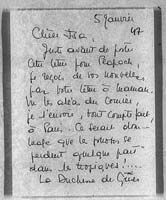 5 Janvier
47
Chère Isa,
Juste avant de poster
cette lettre pour
je reçois de vos nouvelles
par votre lettre à maman.
Vu les aléas du courrier,
je l'envoie, tout compte fait
à Paris. Ce serait dom-
mage que les photos se
perdent quelque part
dans les tropiques!....
La Duchesse de